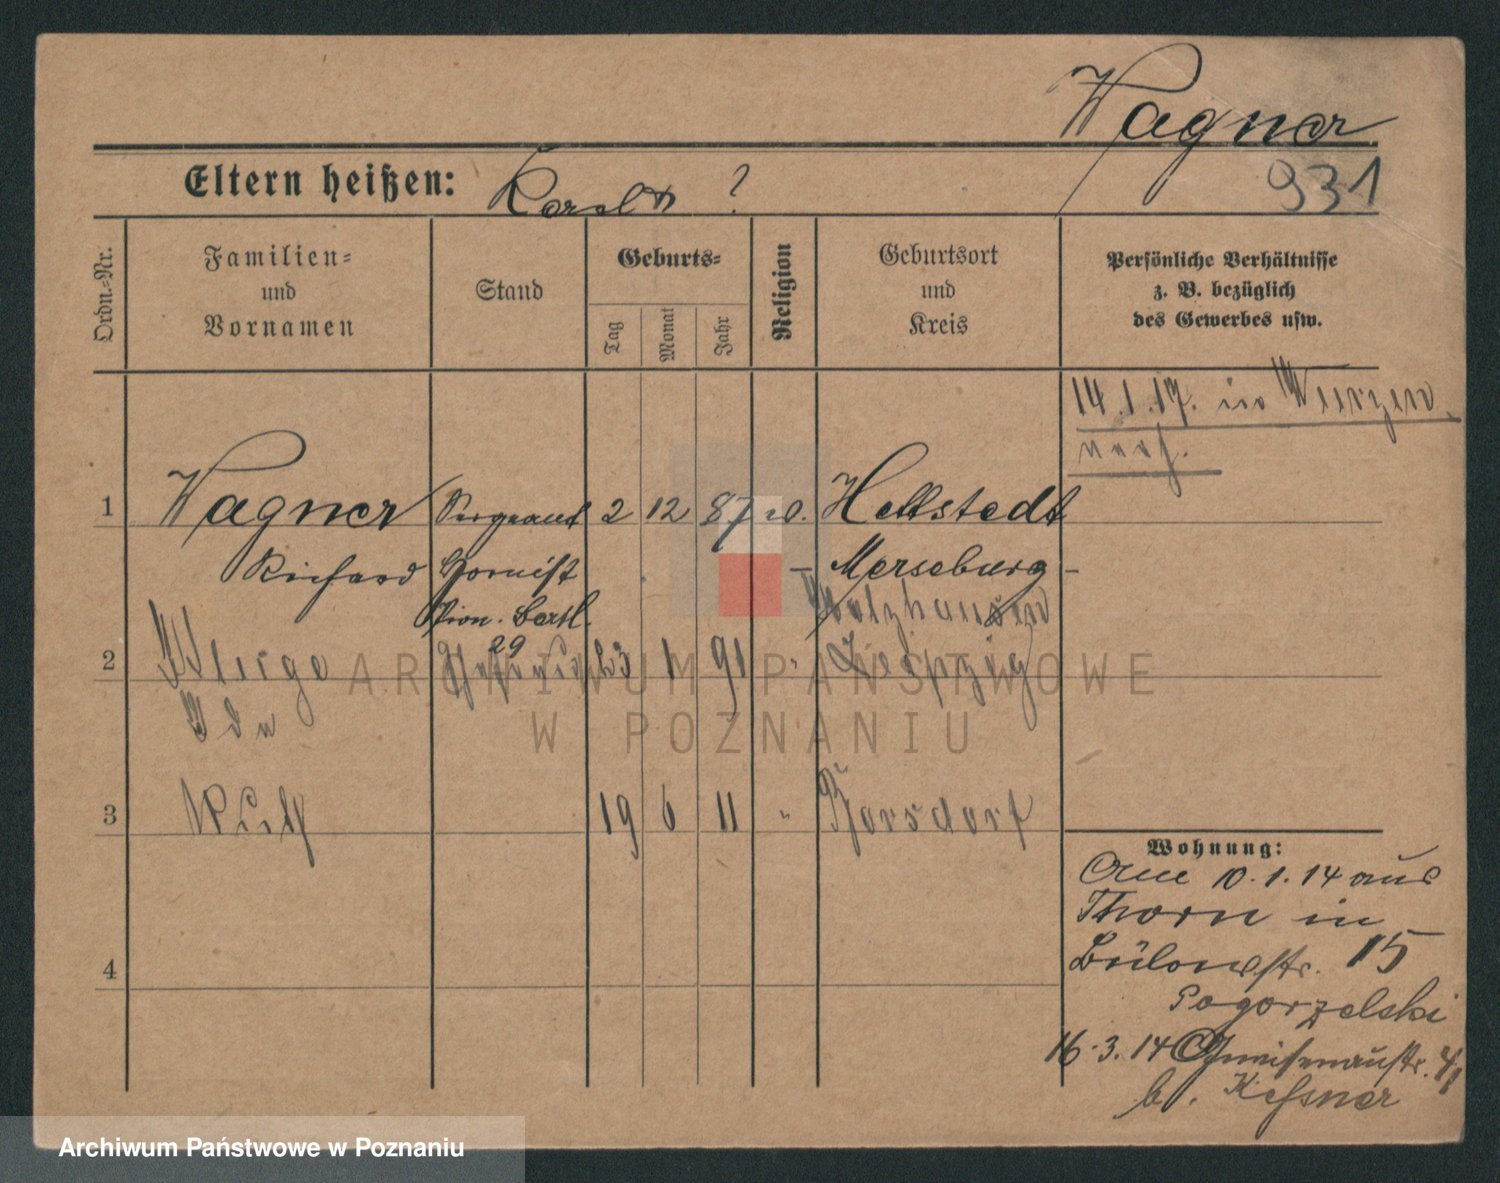 Wagner
Eltern heißen:
?
931
Ordn.-Nr.
Familien-
und
Vornamen
Stand
Geburts-
Tag
Monat
Jahr
Religion
Geburtsort
und
Kreis
Persönliche Verhältnisse
z. B. bezüglich
des Gewerbes usw.
14.1.17. in Wurzen
verh.
1
Wagner
Sergeant
2
12
87
Hettstedt
Richard
Hornist
Merseburg
Pion. Batl.
29
Holzhausen
2
Ida
23
1
91
"
Leipzig
3
19
6
11
"
Borsdorf
4
Wohnung:
Am 10.1.14 aus
Thorn in
Bülowstr. 15
Pogorzelski
16.3.14 Gneisenaustr.
b. Kessner
ARCHIWUM PAŃSTWOWE
W POZNANIU
Archiwum Państwowe w Poznaniu